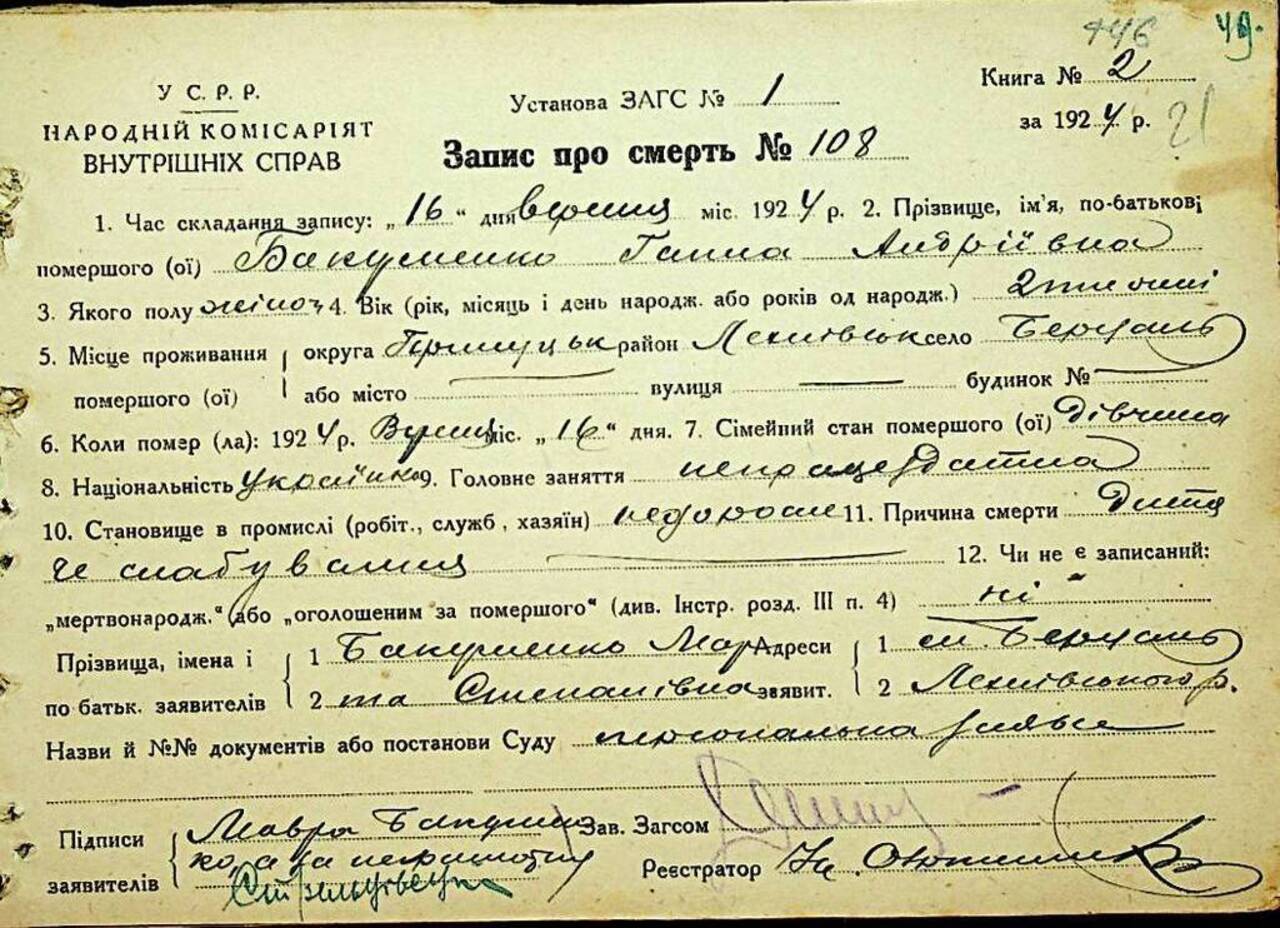 446 49.
У С. Р. Р.
НАРОДНІЙ КОМІСАРІЯТ
ВНУТРІШНІХ СПРАВ
Установа ЗАГС № 1
Книга № 2
за 1924 р. 21
Запис про смерть № 108
1. Час складання запису: „16“ дня вересня міс. 1924 р. 2. Прізвище, ім'я, по-батькові
помершого (ої) Бакуменко Ганна Андріївна
3. Якого полу жіноч 4. Вік (рік, місяць і день народж. або років од народж.) 2 тижні
5. Місце проживання округа Прилуцьк район Лехнівськ село Березань
помершого (ої) або місто — вулиця — будинок № —
6. Коли помер (ла): 1924 р. міс. „16“ дня. 7. Сімейний стан помершого (ої) Дівчина
8. Національність Українка 9. Головне заняття непрацездатна
10. Становище в промислі (робіт., служб, хазяїн) 11. Причина смерти Дитя
че слабування — 12. Чи не є записаний:
„мертвонародж.“ або „оголошеним за помершого“ (див. Інстр. розд. III п. 4) ні
Прізвища, імена і 1 Бакуменко Мар Адреси 1 Березань
по батьк. заявителів 2 та Степанівна заявит. 2 Лехнівського р.
Назви й №№ документів або постанови Суду персональна заява
Підписи Мавра Бакумен Зав. Загсом
заявителів ко, а за неграмотну Реєстратор